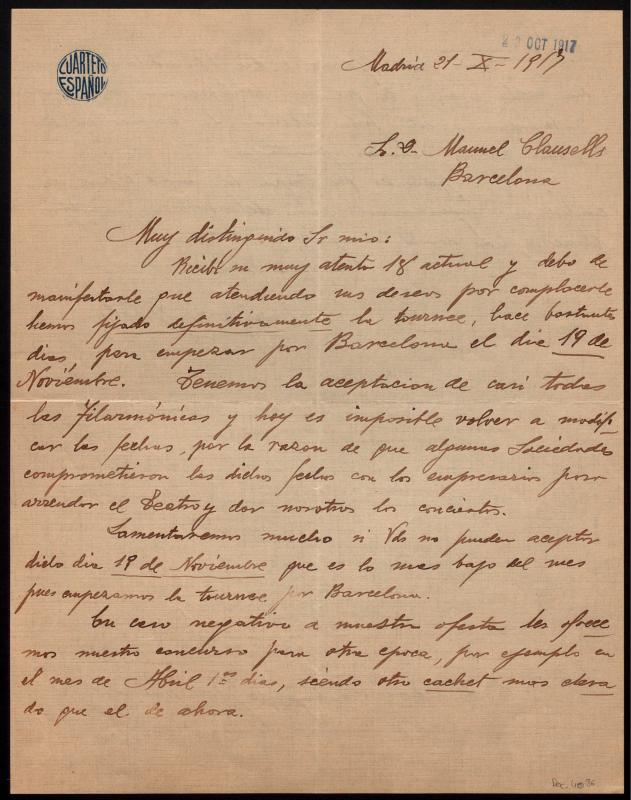 CUARTETO
ESPAÑOL
OCT 1917
Madrid 21-X-1917
Sr. D. Manuel Clausells
Barcelona
Muy distinguido Sr mio:
Recibi su muy atenta 18 actual y debo de
manifestarle que atendiendo sus deseos por complacerle
hemos fijado definitivamente la tournee, hace bastantes
dias, para empezar por Barcelona el dia 19 de
Noviembre. Tenemos la aceptacion de casi todas
las Filarmónicas y hoy es imposible volver a modifi-
car las fechas, por la razon de que algunas Sociedades
comprometieron las dichas fechas con los empresarios para
arrendar el Teatro y dar nosotros los conciertos.
Lamentaremos mucho si Vds no pueden aceptar
dicho dia 19 de Noviembre que es lo mas bajo del mes
pues empezamos la tournee por Barcelona.
En caso negativo a nuestra oferta les ofrece-
mos nuestro concurso para otra epoca, por ejemplo en
el mes de Abril 1os dias, siendo otro cachet mas eleva
do que el de ahora.